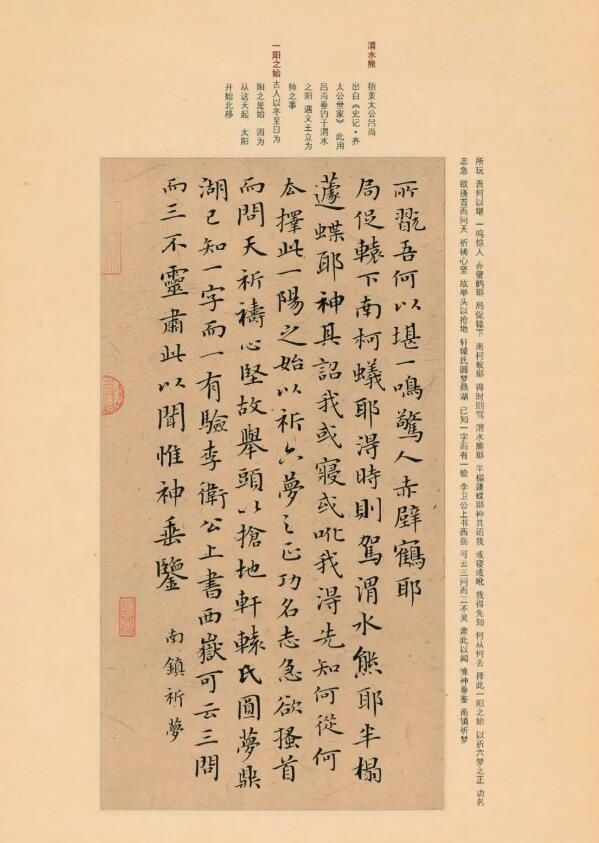 渭水熊
指姜太公吕尚
出自《史记·齐
太公世家》 此用
吕尚垂钓于渭水
之阳 遇文王立为
师之事
一阳之始 古人以冬至日为
阳之是始 因为
从这天起 太阳
开始北移
所玩 吾何以堪 一呜惊人 赤壁鹤耶 局促辕下 南柯蚁耶 得时则驾 渭水熊耶 半榻蘧蝶耶神其诏我 或寝或吪 我得先知 何从何去 择此一阳之始 以祈六梦之正 功名
志急 欲搔首而问天 祈祷心坚 故举头以抢地 轩辕氏圆梦鼎湖 已知一字而有一验 李卫公上书西岳 可云三问而三不灵 肃此以闻 惟神垂鉴 南镇祈梦
所翫吾何以堪一鳴驚人赤壁鶴耶
局促轅下南柯蟻耶得時則駕渭水熊耶半榻
蘧蝶耶神具詔我或寢或吪我得先知何從何
去擇此一陽之始以祈六夢之正功名志急欲搔首
而問天祈禱心堅故舉頭以搶地軒轅氏圓夢鼎
湖已知一字而一有驗李衛公上書西嶽可云三問
而三不靈肅此以聞惟神垂鑒 南鎮祈夢